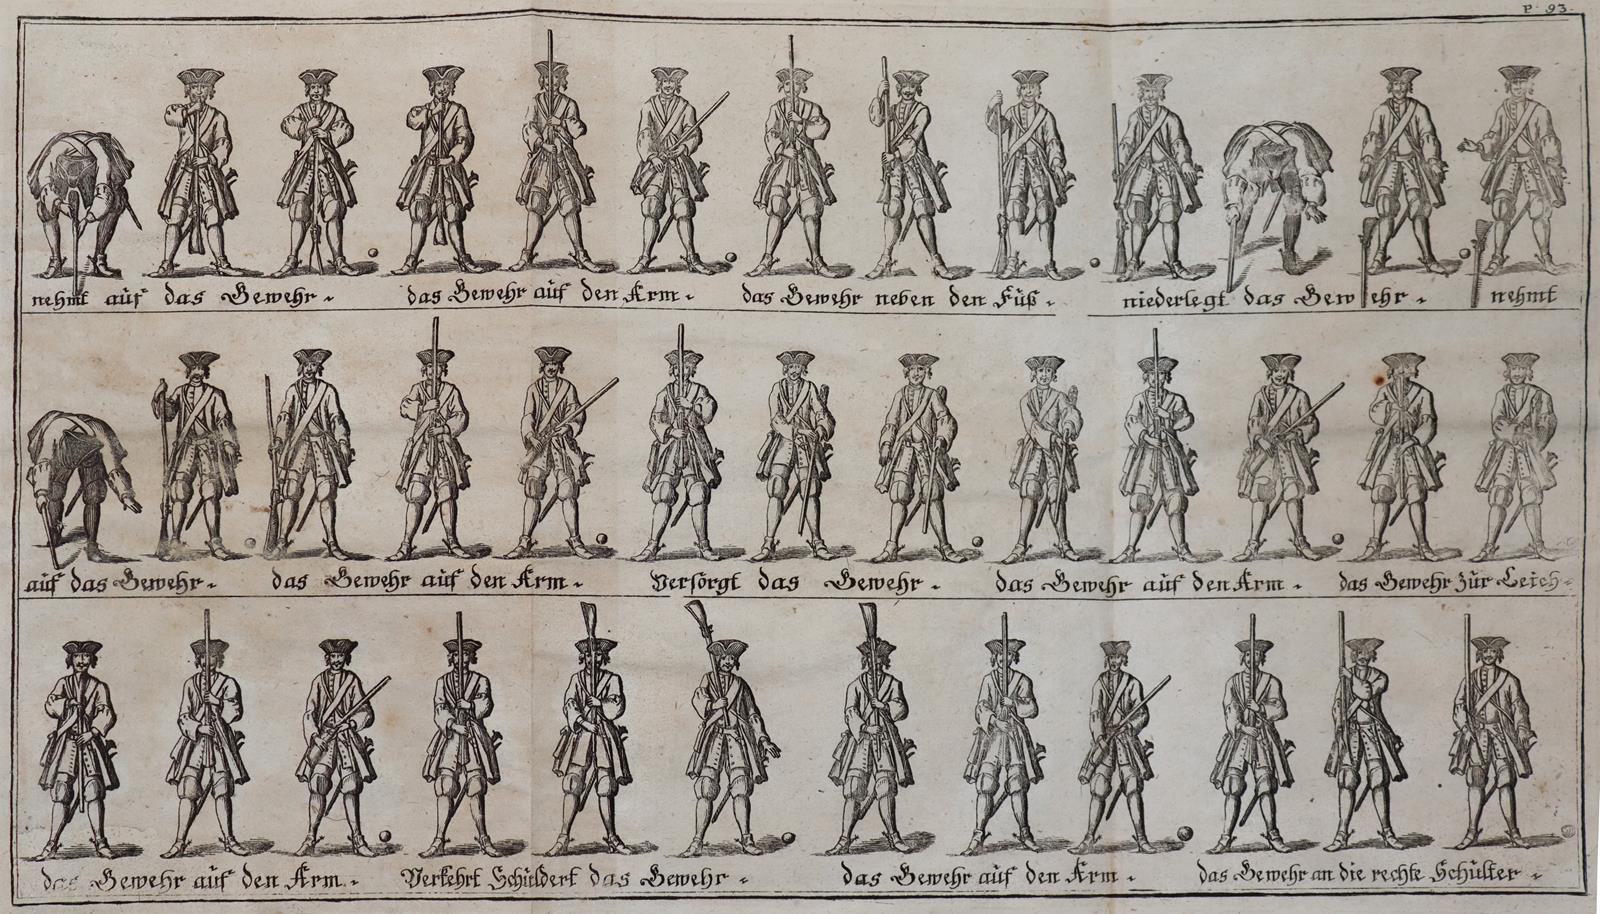 P. 93.
nehmt auf das Gewehr. das Gewehr auf den Arm. das Gewehr neben den Füß. niederlegt das Gewehr. nehmt
auf das Gewehr. das Gewehr auf den Arm. Versorgt das Gewehr. das Gewehr auf den Arm. das Gewehr zür Leich-
das Gewehr auf den Arm. Verkehrt Schüldert das Gewehr. das Gewehr auf den Arm. das Gewehr an die rechte Schülter.